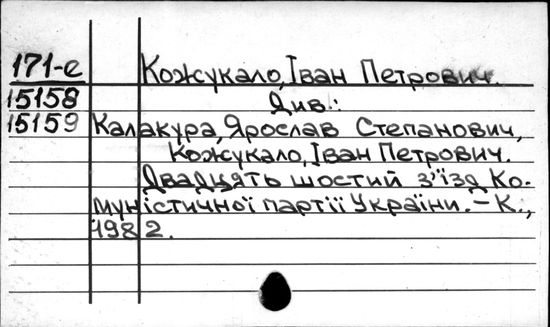 171-е Кожукало, Іван Петрович.
15158 Див.:
15159 Калакура, Ярослав Степанович,
Кожукало, Іван Петрович.
Двадцять шостий з'їзд Ко-
муністичної партії України. – К.,
1982.